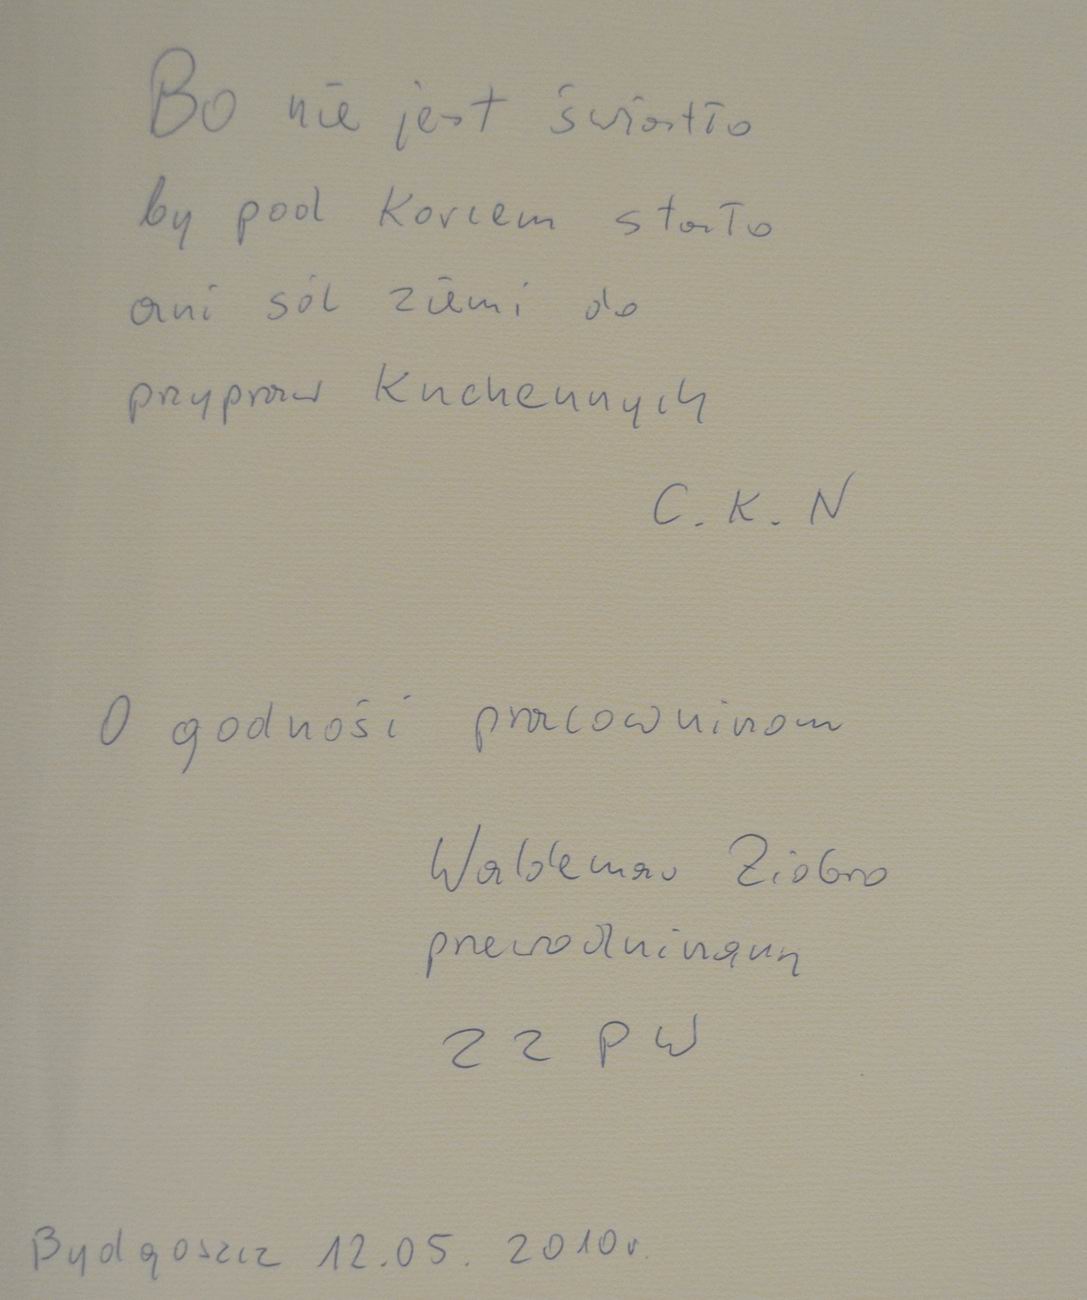 Bo nie jest światło
by pod Korcem stało
ani sól ziemi do
przypraw Kuchennych
C. K. N
O godności pracowniczą
Waldemar Ziobro
przewodniczący
ZZ PW
Bydgoszcz 12.05. 2010r.